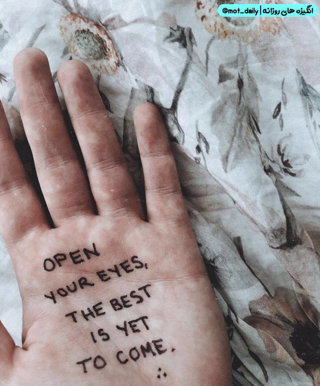 انگیزه های روزانه | @mot_daily
OPEN
YOUR EYES,
THE BEST
IS YET
TO COME.